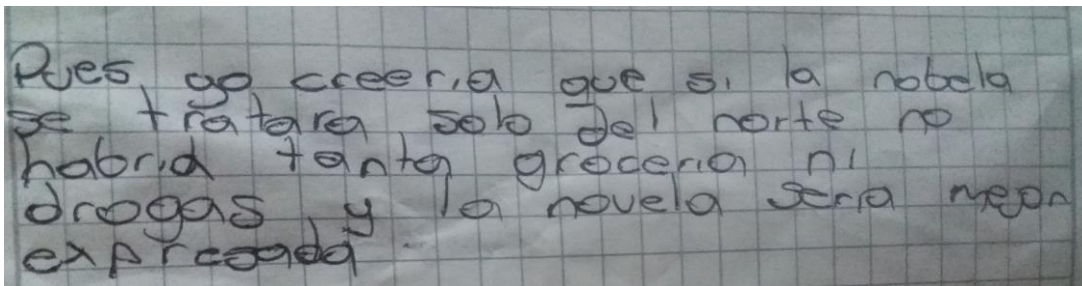 Pues yo creeria que si la nobela
se tratara solo del norte no
habria tanta groceria ni
drogas y la novela seria mejor
expresada